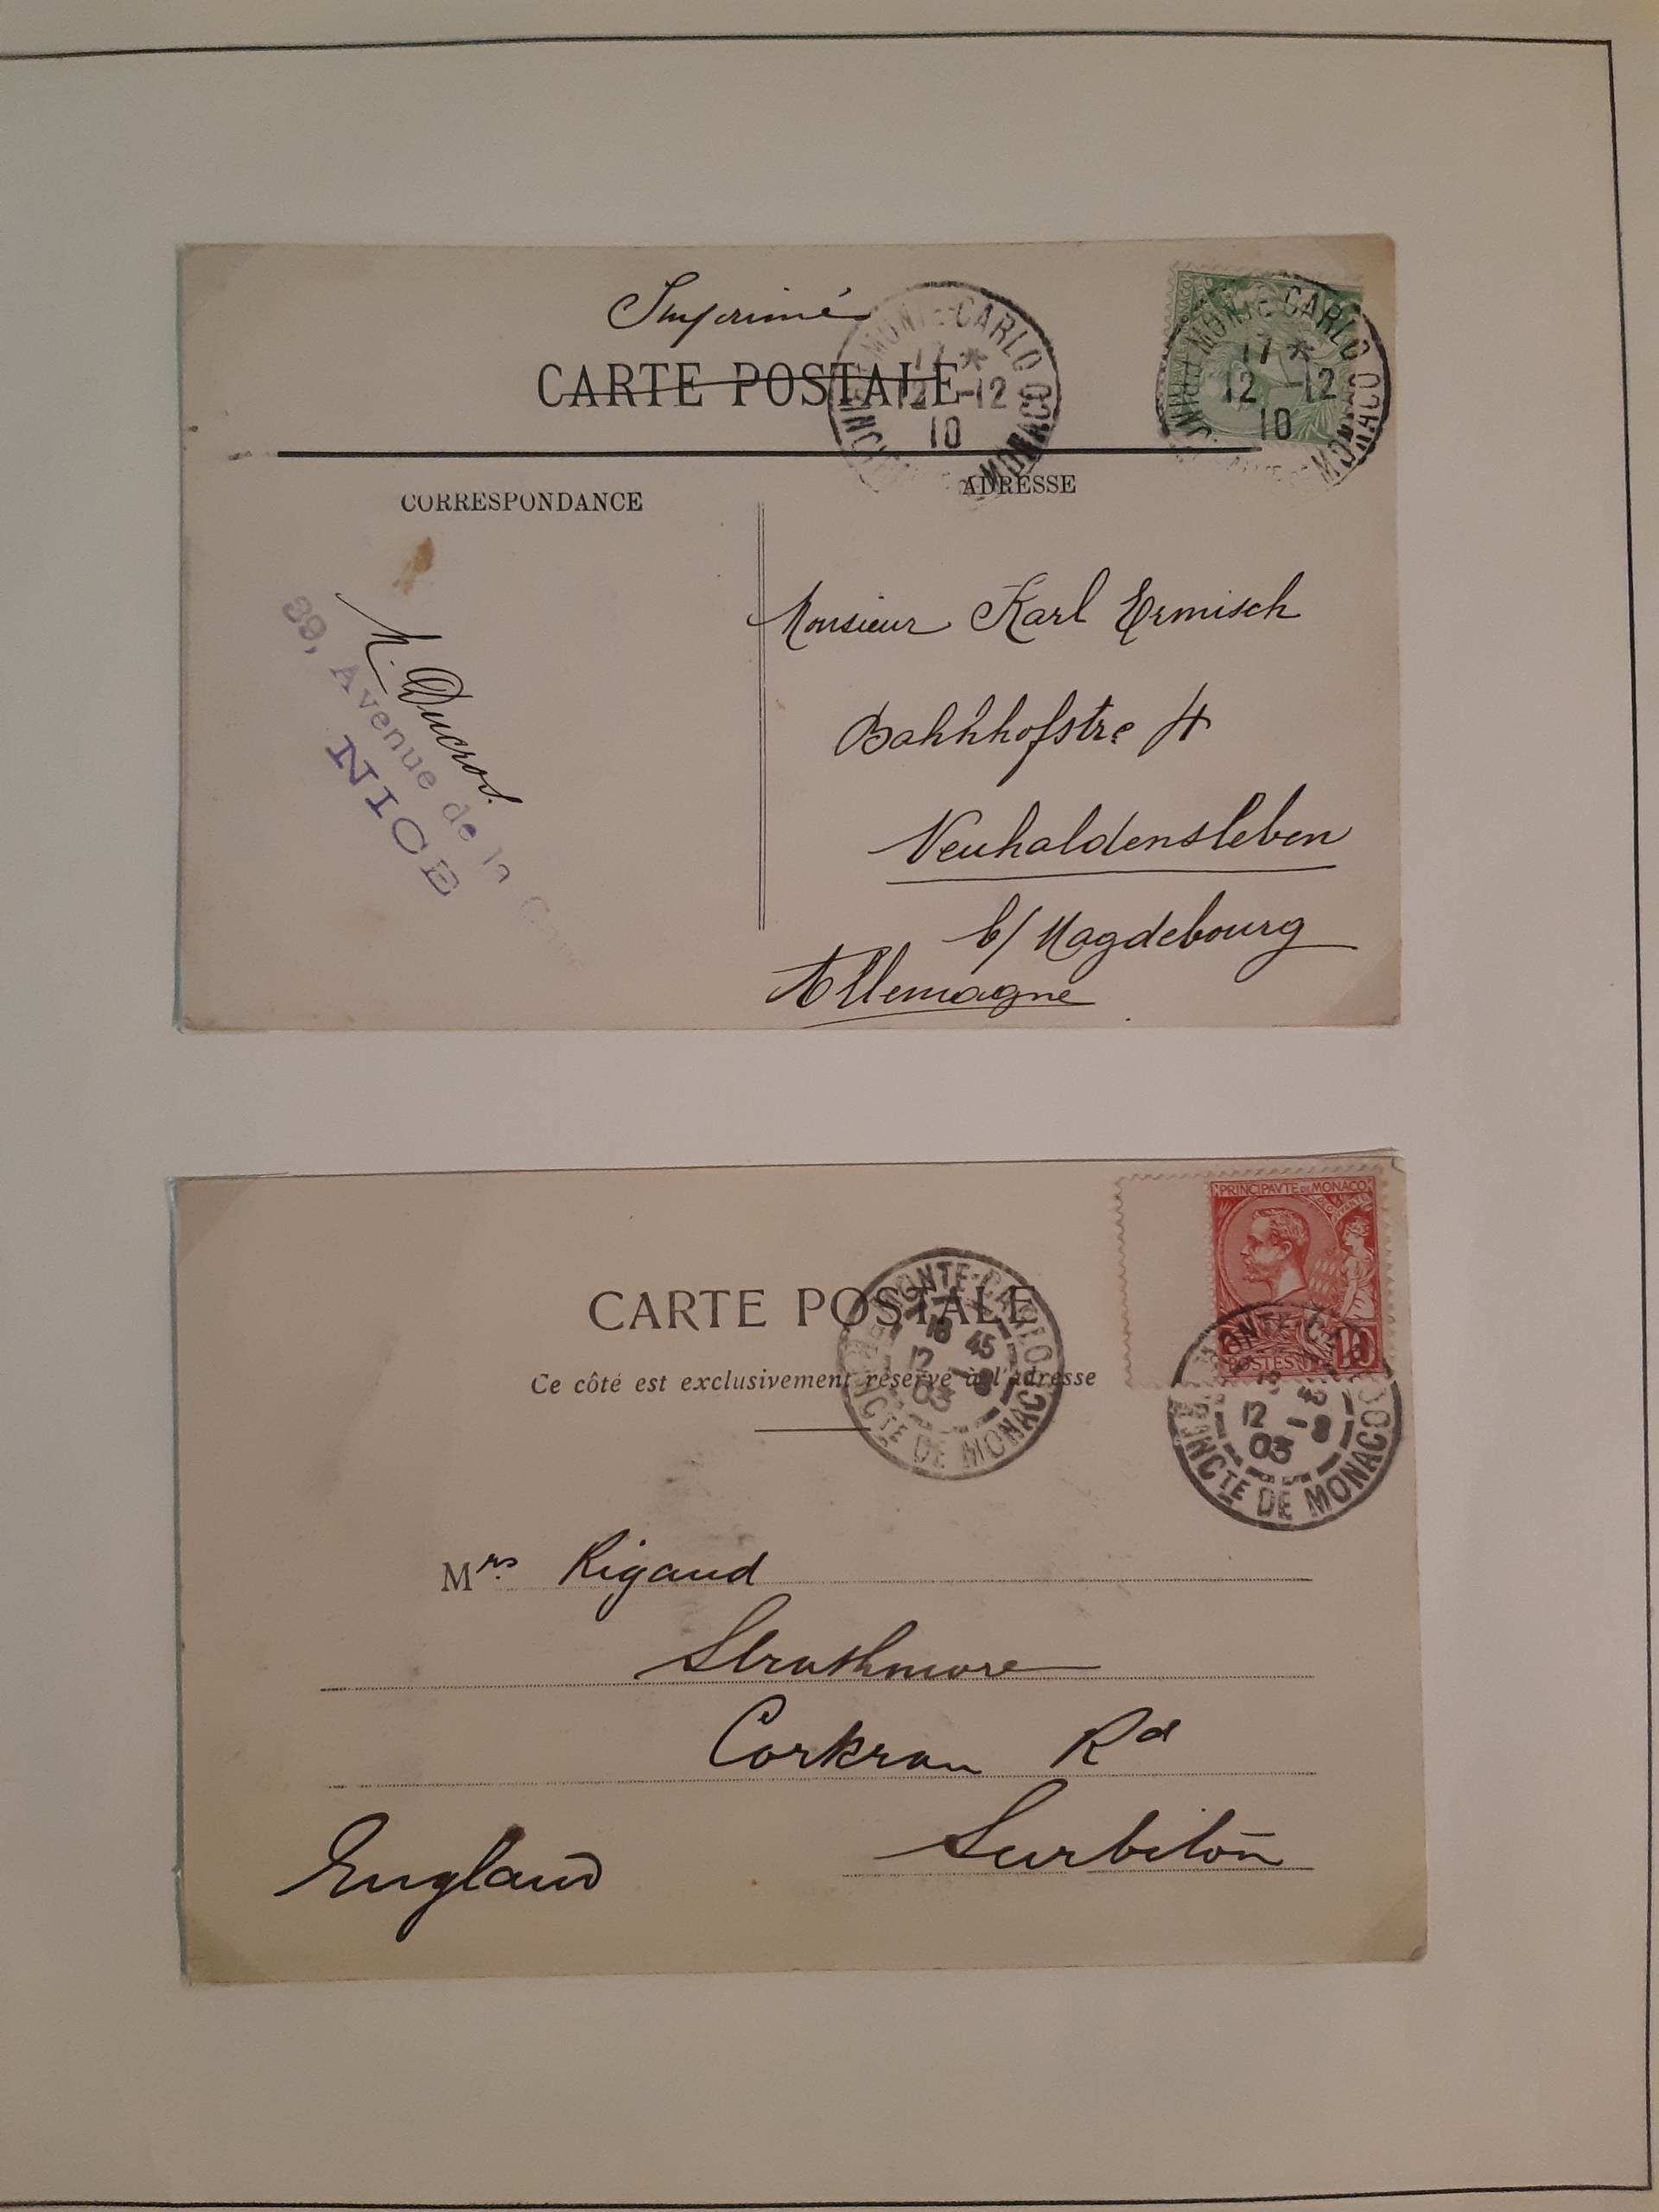 Imprimé
CARTE POSTALE
MONTE-CARLO
17 *
12 -12
10
MONACO
MONTE-CARLO
17 *
12 -12
10
PRINC
MONACO
CORRESPONDANCE
ADRESSE
Ducros.
39, Avenue de la
NICE
Monsieur Karl Ermisch
Bahnhofstre 4
Neuhaldensleben
b/ Magdebourg
Allemagne
PRINCIPAVTÉ DE MONACO
POSTES
10
CARTE POSTALE
Ce côté est exclusivement réservé à l'adresse
MONTE-CARLO
18 45
12 -8
03
PRINCTE DE MONACO
MONTE-CARLO
18 45
12 -8
03
PRINCTE DE MONACO
Mrs. Rigaud
Strathmore
Corkran Rd
Surbiton
England